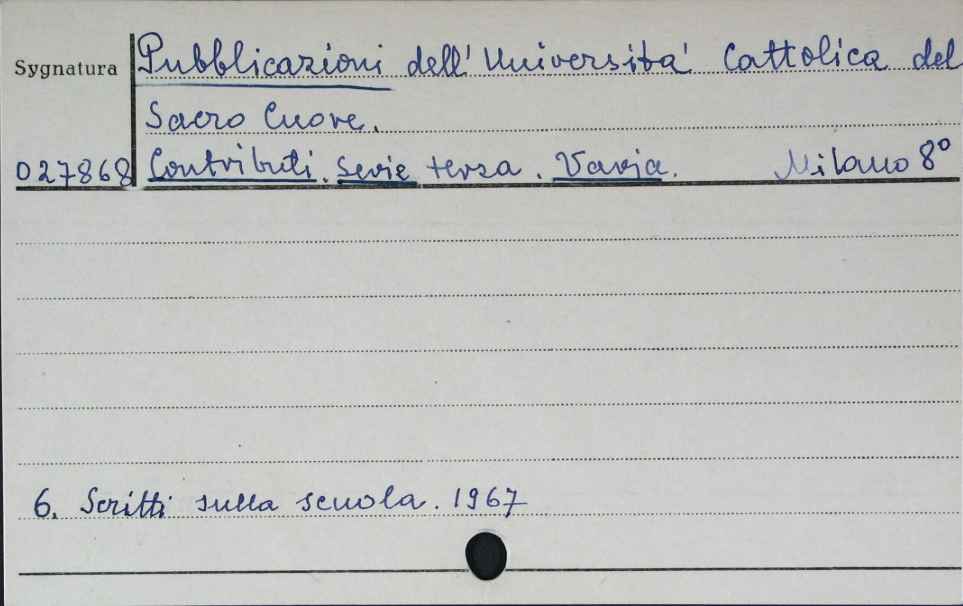 Sygnatura Pubblicazioni dell' Universita' Cattolica del
Sacro Cuore.
027868 Contributi. Serie terza. Varia. Milano 8°
6. Scritti sulla scuola. 1967